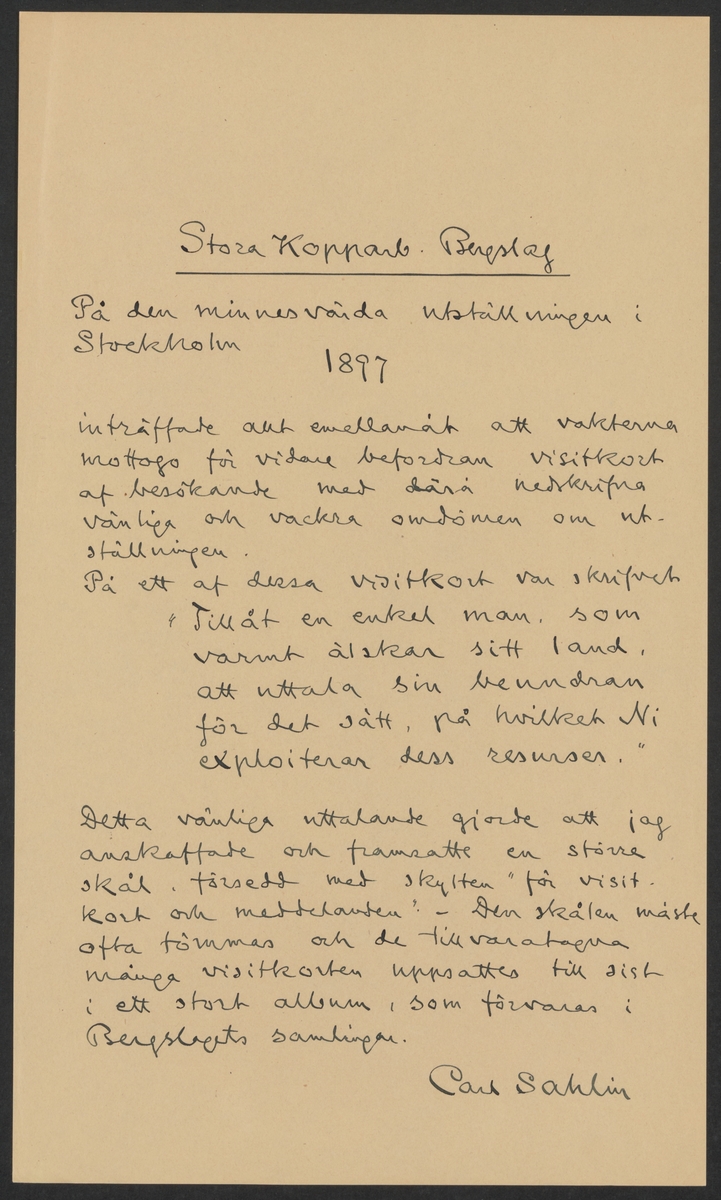 Stora Kopparb. Bergslag
På den minnesvärda utställningen i
Stockholm
1897
inträffade allt emellanåt att vakterna
mottogo för vidare befordran visitkort
af besökande med därå nedskrifna
vänliga och vackra omdömen om ut-
ställningen.
På ett af dessa visitkort var skrifvet
"Tillåt en enkel man, som
varmt älskar sitt land,
att uttala sin beundran
för det sätt, på hvilket Ni
exploiterar dess resurser."
Detta vänliga uttalande gjorde att jag
anskaffade och framsatte en större
skål, försedd med skylten "för visit-
kort och meddelanden". – Den skålen måste
ofta tömmas och de tillvaratagna
många visitkorten uppsattes till sist
i ett stort album, som förvaras i
Bergslagets samlingar.
Carl Sahlin